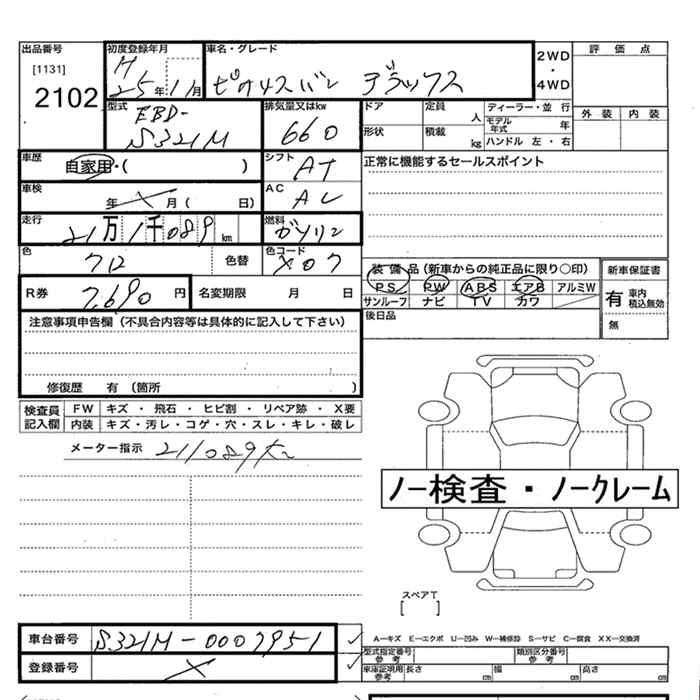 出品番号
[1131]
2102
初度登録年月
H
25年11月
車名・グレード
ピクシスバン デラックス
2WD
・
4WD
評価点
外装 内装
型式
EBD-
S321M
排気量又はkw
660
ドア
定員 人
ディーラー・並行
モデル年式 年
形状
積載 kg
ハンドル 左・右
車歴
自家用・( )
シフト
AT
正常に機能するセールスポイント
車検
年 X 月( 日)
AC
AC
走行
21万1千089km
燃料
ガソリン
色
クロ
色替
色コード
X07
装備品(新車からの純正品に限り○印)
PS PW ABS エアB アルミW
サンルーフ ナビ TV カワ
新車保証書
有 車内積込無効
無
R券
7,690円
名変期限 月 日
後日品
注意事項申告欄(不具合内容等は具体的に記入して下さい)
修復歴 有(箇所 )
検査員記入欄
FW キズ・飛石・ヒビ割・リペア跡・X要
内装 キズ・汚レ・コゲ・穴・スレ・キレ・破レ
メーター指示 211089
ノー検査・ノークレーム
スペアT
[ ]
車台番号
S321M-0007951
A-キズ E-エクボ U-凹ミ W-補修跡 S-サビ C-腐食 XX-交換済
型式指定番号 参考
類別区分番号 参考
登録番号
X
車庫証明用 参考
長さ cm
幅 cm
高さ cm